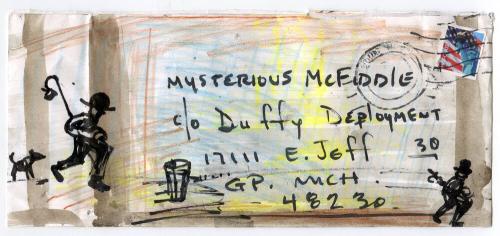 MYSTERIOUS McFIDDLE
c/o Duffy DEPLOYMENT
17111 E. Jeff 30
GP. MICH
48230